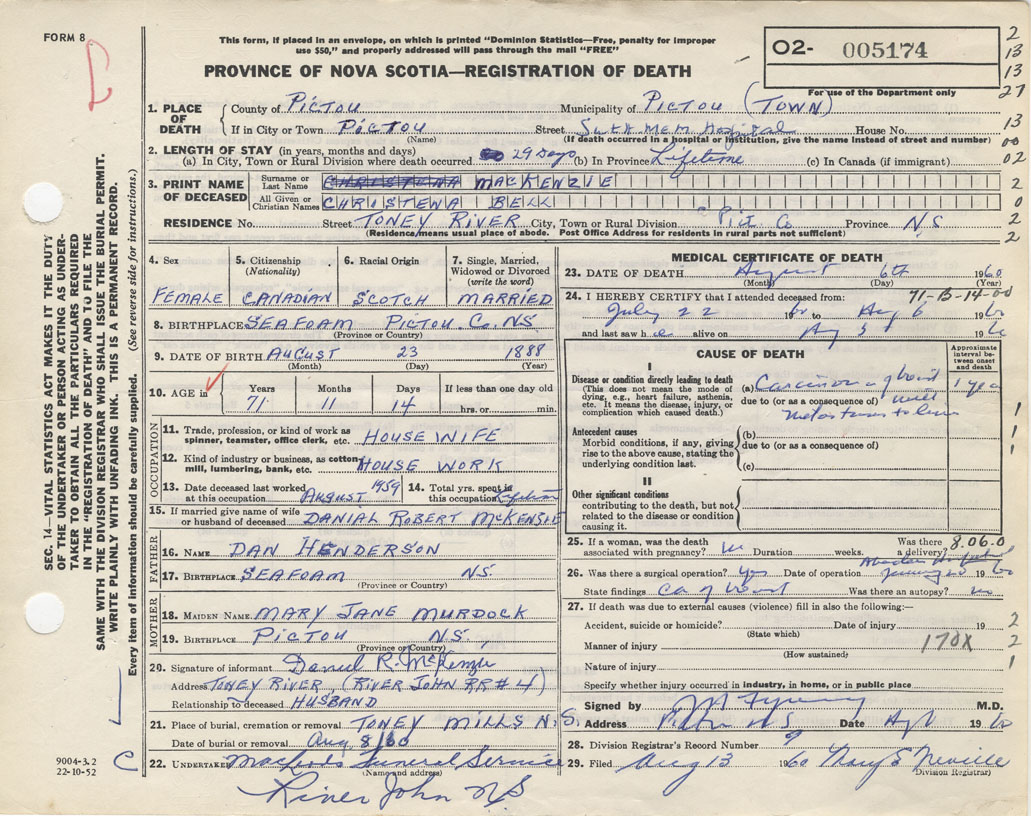 FORM 8
This form, if placed in an envelope, on which is printed "Dominion Statistics—Free, penalty for improper
use $50," and properly addressed will pass through the mail "FREE"
PROVINCE OF NOVA SCOTIA—REGISTRATION OF DEATH
02- 005174
For use of the Department only
2
13
13
27
13
00
02
2
0
2
2
SEC. 14—VITAL STATISTICS ACT MAKES IT THE DUTY
OF THE UNDERTAKER OR PERSON ACTING AS UNDER-
TAKER TO OBTAIN ALL THE PARTICULARS REQUIRED
IN THE "REGISTRATION OF DEATH" AND TO FILE THE
SAME WITH THE DIVISION REGISTRAR WHO SHALL ISSUE THE BURIAL PERMIT.
WRITE PLAINLY WITH UNFADING INK. THIS IS A PERMANENT RECORD.
Every item of information should be carefully supplied. (See reverse side for instructions.)
1. PLACE OF DEATH { County of PICTOU Municipality of PICTOU (TOWN)
If in City or Town PICTOU Street Suth Mem Hospital House No.
(Name) (If death occurred in a hospital or institution, give the name instead of street and number)
2. LENGTH OF STAY (in years, months and days)
(a) In City, Town or Rural Division where death occurred 29 Days (b) In Province Lifetime (c) In Canada (if immigrant)
3. PRINT NAME OF DECEASED { Surname or Last Name CHRISTENA MACKENZIE
All Given or Christian Names CHRISTENA BELL
RESIDENCE No. Street TONEY RIVER City, Town or Rural Division Pict. Co Province N.S
(Residence means usual place of abode. Post Office Address for residents in rural parts not sufficient)
4. Sex 5. Citizenship (Nationality) 6. Racial Origin 7. Single, Married, Widowed or Divorced (write the word)
FEMALE CANADIAN SCOTCH MARRIED
8. BIRTHPLACE SEAFOAM PICTOU. CO. NS
(Province or Country)
9. DATE OF BIRTH AUGUST 23 1888
(Month) (Day) (Year)
10. AGE in Years Months Days If less than one day old
71 11 14 hrs. or min.
OCCUPATION
11. Trade, profession, or kind of work as spinner, teamster, office clerk, etc. HOUSE WIFE
12. Kind of industry or business, as cotton-mill, lumbering, bank, etc. HOUSE WORK
13. Date deceased last worked at this occupation AUGUST 1959 14. Total yrs. spent in this occupation Lifetime
15. If married give name of wife or husband of deceased DANIAL ROBERT McKENZIE
FATHER
16. NAME DAN HENDERSON
17. BIRTHPLACE SEAFOAM NS.
(Province or Country)
MOTHER
18. MAIDEN NAME MARY JANE MURDOCK
19. BIRTHPLACE PICTOU N.S.
(Province or Country)
20. Signature of informant Daniel R. McKenzie
Address TONEY RIVER (RIVER JOHN RR #4)
Relationship to deceased HUSBAND
21. Place of burial, cremation or removal TONEY MILLS N.S.
Date of burial or removal Aug 8/60
22. UNDERTAKER MacLeods Funeral Service
(Name and address)
River John NS
9004-3.2
22-10-52
C
MEDICAL CERTIFICATE OF DEATH
23. DATE OF DEATH August 6th 1960
(Month) (Day) (Year)
71-B-14-00
24. I HEREBY CERTIFY that I attended deceased from:
July 22 1960 to Aug 6 1960
and last saw her alive on Aug 5 1960
CAUSE OF DEATH
Approximate interval between onset and death
I
Disease or condition directly leading to death
(This does not mean the mode of dying, e.g., heart failure, asthenia, etc. It means the disease, injury, or complication which caused death.)
(a) Carcinoma of breast 1 year
due to (or as a consequence of) with
metastases to
Antecedent causes
Morbid conditions, if any, giving rise to the above cause, stating the underlying condition last.
(b)
due to (or as a consequence of)
(c)
II
Other significant conditions
contributing to the death, but not related to the disease or condition causing it.
1
1
1
25. If a woman, was the death associated with pregnancy? no Duration weeks. Was there a delivery? 8.06.0
26. Was there a surgical operation? Yes Date of operation 1960
State findings Was there an autopsy? no
27. If death was due to external causes (violence) fill in also the following:—
Accident, suicide or homicide? Date of injury 19 2
(State which)
Manner of injury 170X 2
(How sustained)
Nature of injury 1
Specify whether injury occurred in industry, in home, or in public place
Signed by M.D.
Address Pictou N S Date 1960
28. Division Registrar's Record Number 9
29. Filed Aug 13 1960 Mary E Neville
(Division Registrar)